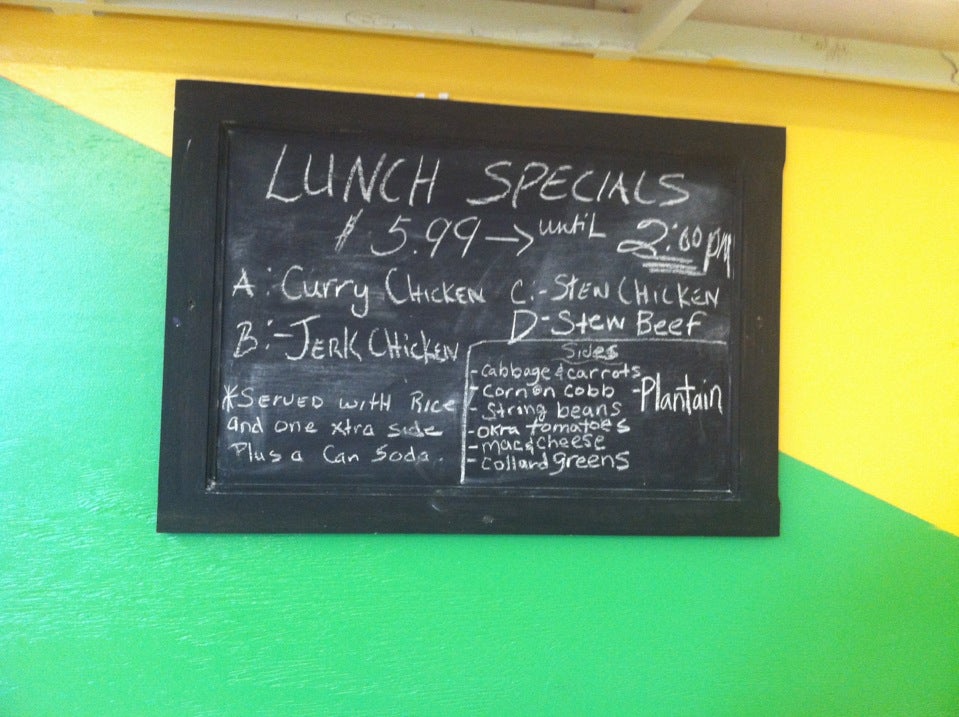 LUNCH SPECIALS
$ 5.99 → until 2:00 PM
A: Curry CHICKEN
B:- JERK CHICKEN
C:- STEN CHICKEN
D- Stew Beef
*SERVED WITH RICE
and one xtra side
Plus a Can Soda.
Sides
- Cabbage & carrots
- Corn on cobb
- String beans
- okra tomatoes
- mac & cheese
- Collard greens
- Plantain